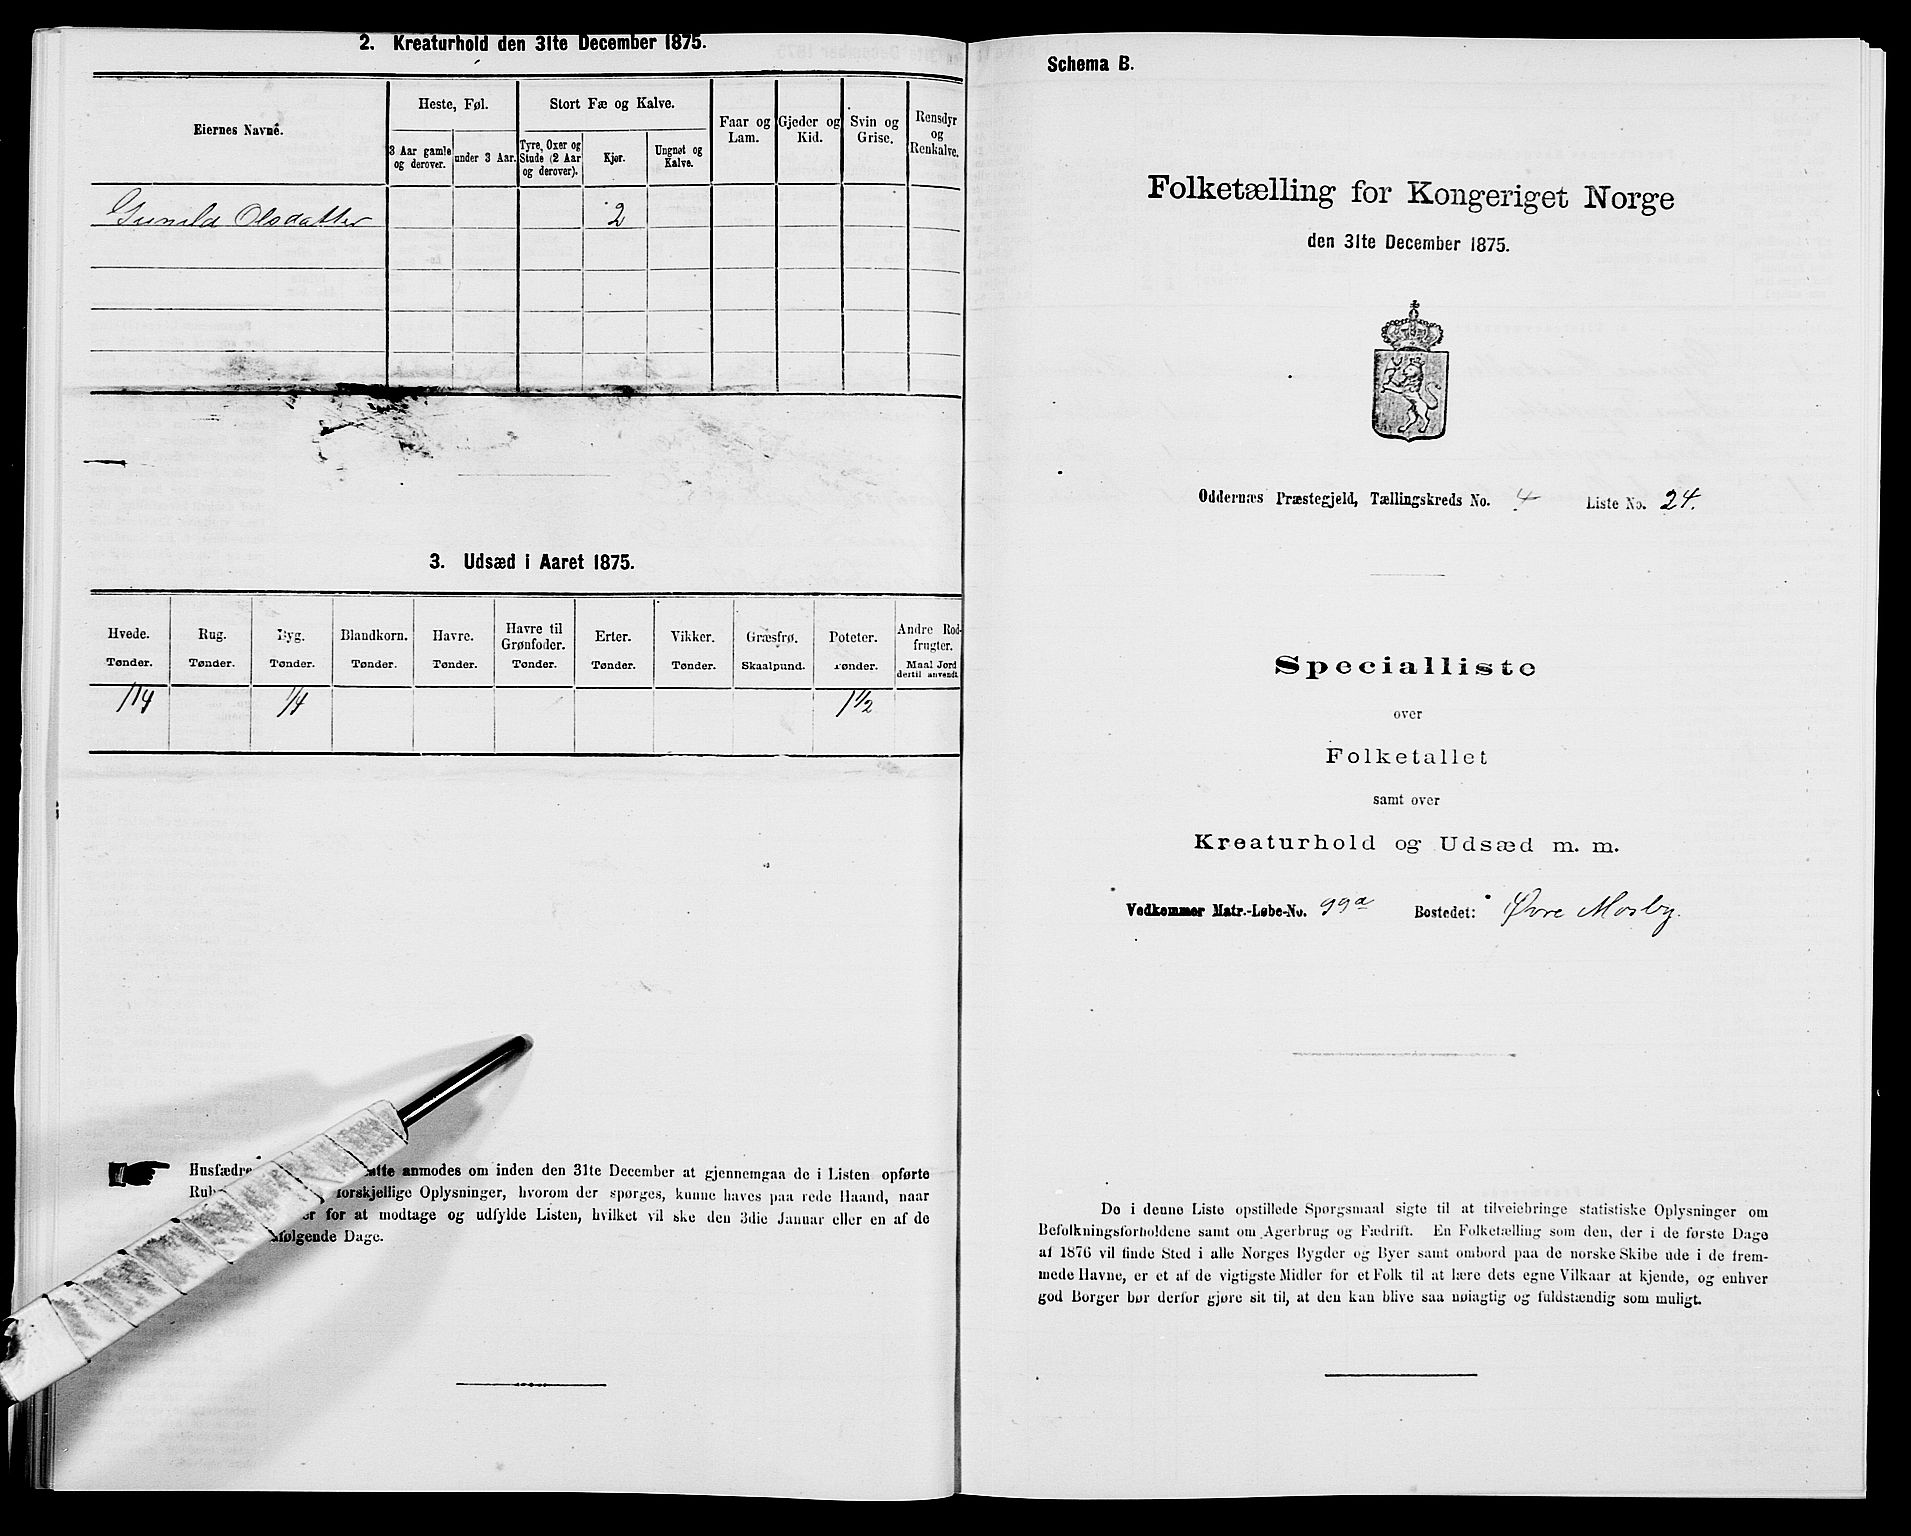 2. Kreaturhold den 31te December 1875.
Eiernes Navne.
Heste, Føl.
Stort Fæ og Kalve.
Faar og Lam.
Gjeder og Kid.
Svin og Grise.
Rensdyr og Renkalve.
3 Aar gamle og derover.
under 3 Aar.
Tyre, Oxer og Stude (2 Aar og derover).
Kjør.
Ungnøt og Kalve.
Gunild Olsdatter 2
3. Udsæd i Aaret 1875.
Hvede. Rug. Byg. Blandkorn. Havre. Havre til Grønfoder. Erter. Vikker. Græsfrø. Poteter. Andre Rodfrugter.
Tønder. Tønder. Tønder. Tønder. Tønder. Tønder. Tønder. Tønder. Skaalpund. Tønder. Maal Jord dertil anvendt.
1/4 1/4 1 1/2
Husfædre atte anmodes om inden den 31te December at gjennemgaa de i Listen opførte
forskjellige Oplysninger, hvorom der spørges, kunne haves paa rede Haand, naar
for at modtage og udfylde Listen, hvilket vil ske den 3die Januar eller en af de
følgende Dage.
Schema B.
Folketælling for Kongeriget Norge
den 31te December 1875.
Oddernæs Præstegjeld, Tællingskreds No. 4 Liste No. 24.
Specialliste
over
Folketallet
samt over
Kreaturhold og Udsæd m. m.
Vedkommer Matr.-Løbe-No. 99a Bostedet: Øvre Mosby.
De i denne Liste opstillede Spørgsmaal sigte til at tilveiebringe statistiske Oplysninger om
Befolkningsforholdene samt om Agerbrug og Fædrift. En Folketælling som den, der i de første Dage
af 1876 vil finde Sted i alle Norges Bygder og Byer samt ombord paa de norske Skibe ude i de frem-
mede Havne, er et af de vigtigste Midler for et Folk til at lære dets egne Vilkaar at kjende, og enhver
god Borger bør derfor gjøre sit til, at den kan blive saa nøiagtig og fuldstændig som muligt.